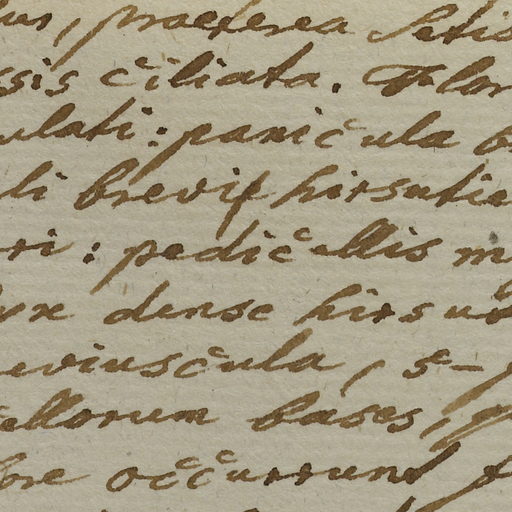 us, praeterea Setis
ssis ciliata. Flor
ulati: panicula
li brevis hirsutie
ri: pedicellis m
yx dense hirsu
eviuscula, 5-
ellorum bases,
ore occurrunt